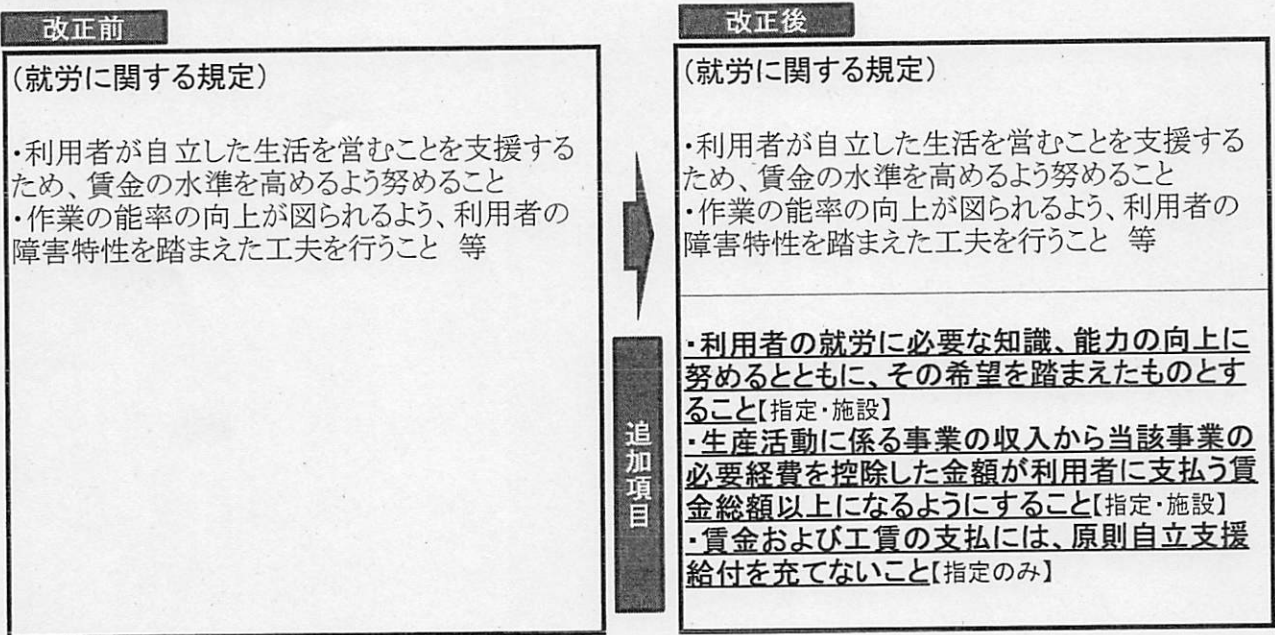 改正前
(就労に関する規定)
・利用者が自立した生活を営むことを支援する
ため、賃金の水準を高めるよう努めること
・作業の能率の向上が図られるよう、利用者の
障害特性を踏まえた工夫を行うこと 等
追加項目
改正後
(就労に関する規定)
・利用者が自立した生活を営むことを支援する
ため、賃金の水準を高めるよう努めること
・作業の能率の向上が図られるよう、利用者の
障害特性を踏まえた工夫を行うこと 等
・利用者の就労に必要な知識、能力の向上に
努めるとともに、その希望を踏まえたものとす
ること【指定・施設】
・生産活動に係る事業の収入から当該事業の
必要経費を控除した金額が利用者に支払う賃
金総額以上になるようにすること【指定・施設】
・賃金および工賃の支払には、原則自立支援
給付を充てないこと【指定のみ】